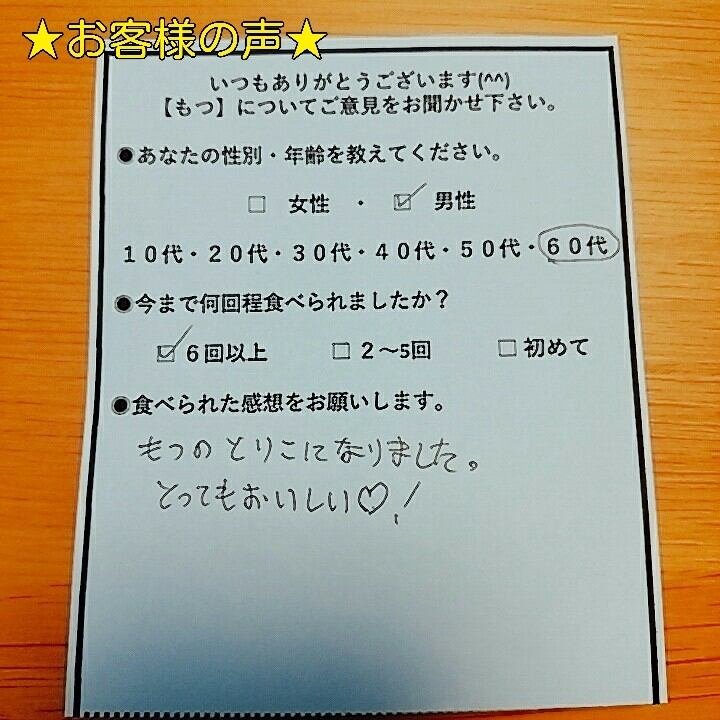 ★お客様の声★
いつもありがとうございます(^^)
【もつ】についてご意見をお聞かせ下さい。
●あなたの性別・年齢を教えてください。
□ 女性 ・ ☑ 男性
10代・20代・30代・40代・50代・60代
●今まで何回程食べられましたか？
☑６回以上 □２～5回 □初めて
●食べられた感想をお願いします。
もつのとりこになりました。
とってもおいしい♡！